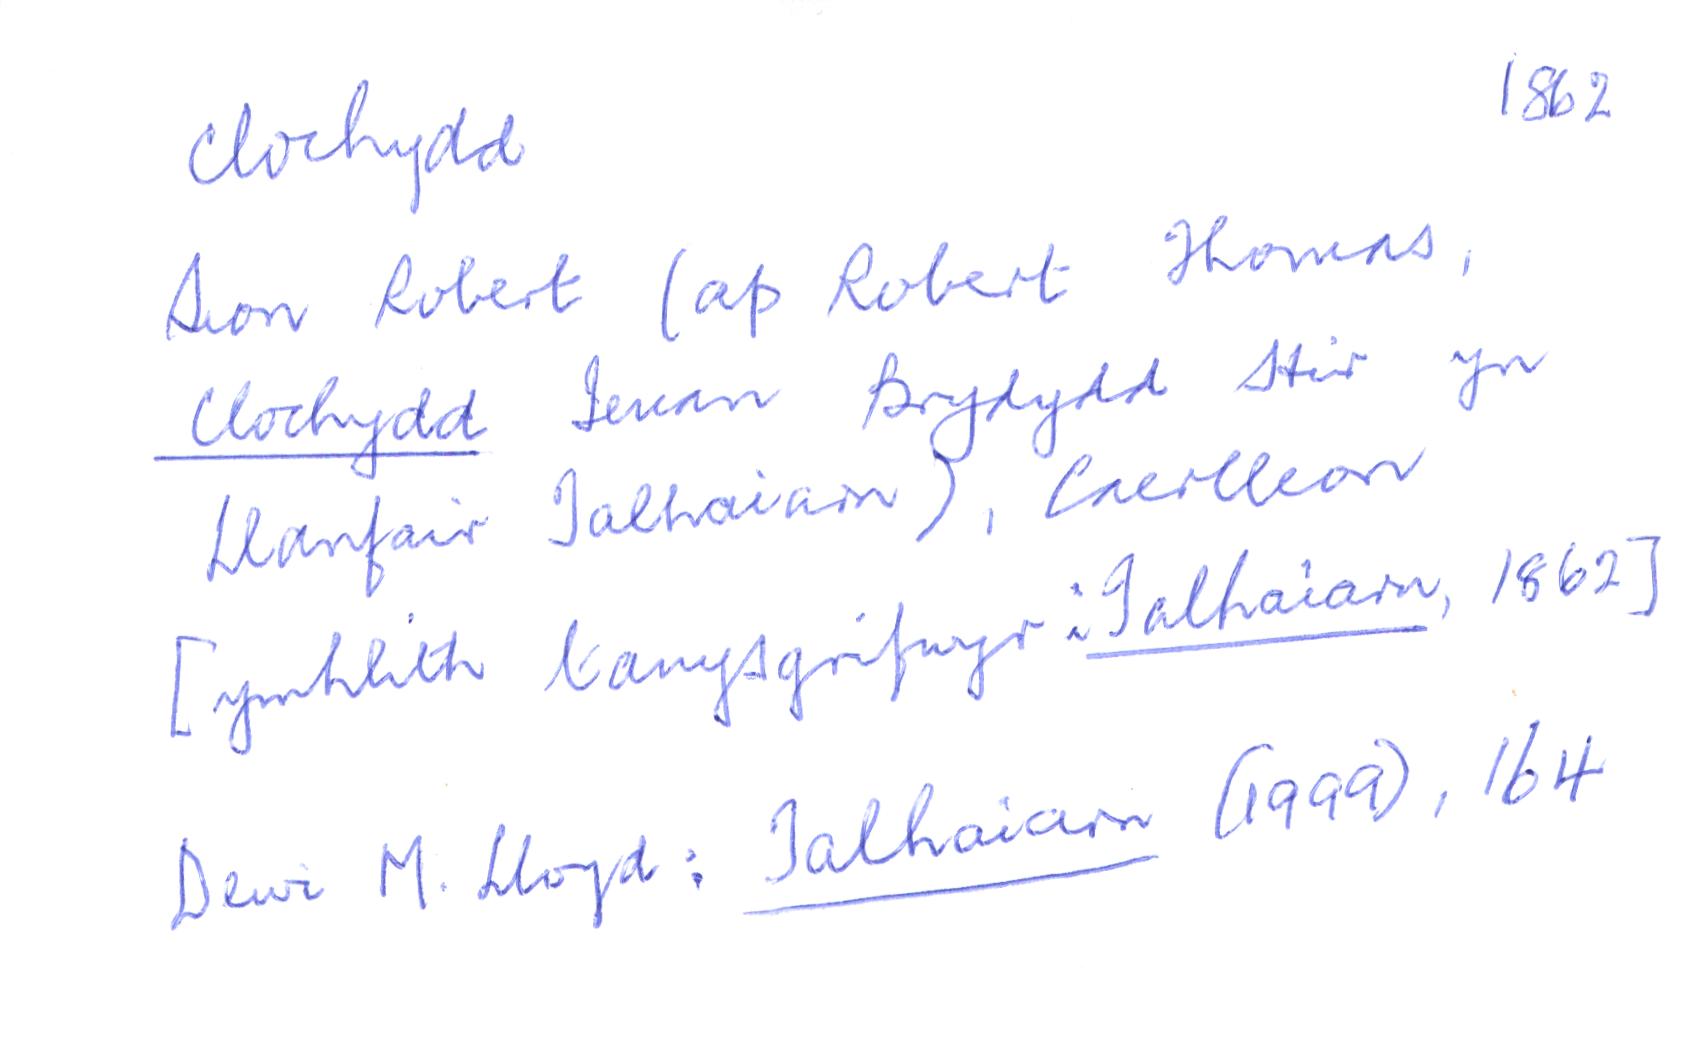 clochydd 1862
Sion Robert (ap Robert Thomas,
Clochydd Ieuan Brydydd Hir yn
Llanfair Talhaiarn), Caerlleon
[ymhlith tanysgrifwyr: Talhaiarn, 1862]
Dewi M. Lloyd: Talhaiarn (1999), 164